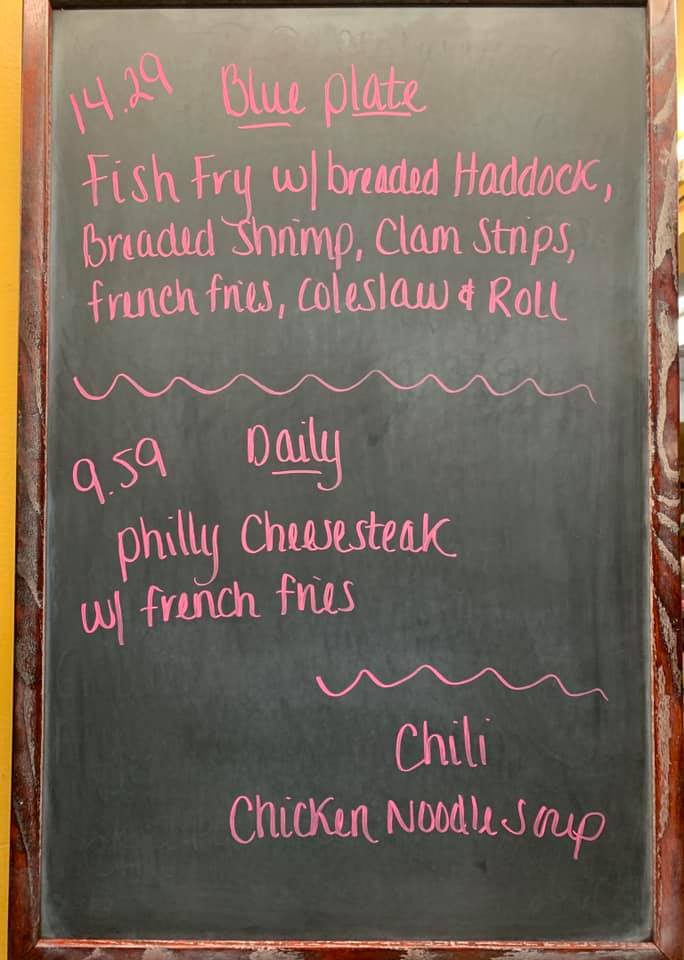 14.29 Blue Plate
Fish Fry w/ breaded Haddock,
Breaded Shrimp, Clam Strips,
french fries, coleslaw & Roll
9.59 Daily
philly Cheesesteak
w/ french fries
Chili
Chicken Noodle Soup